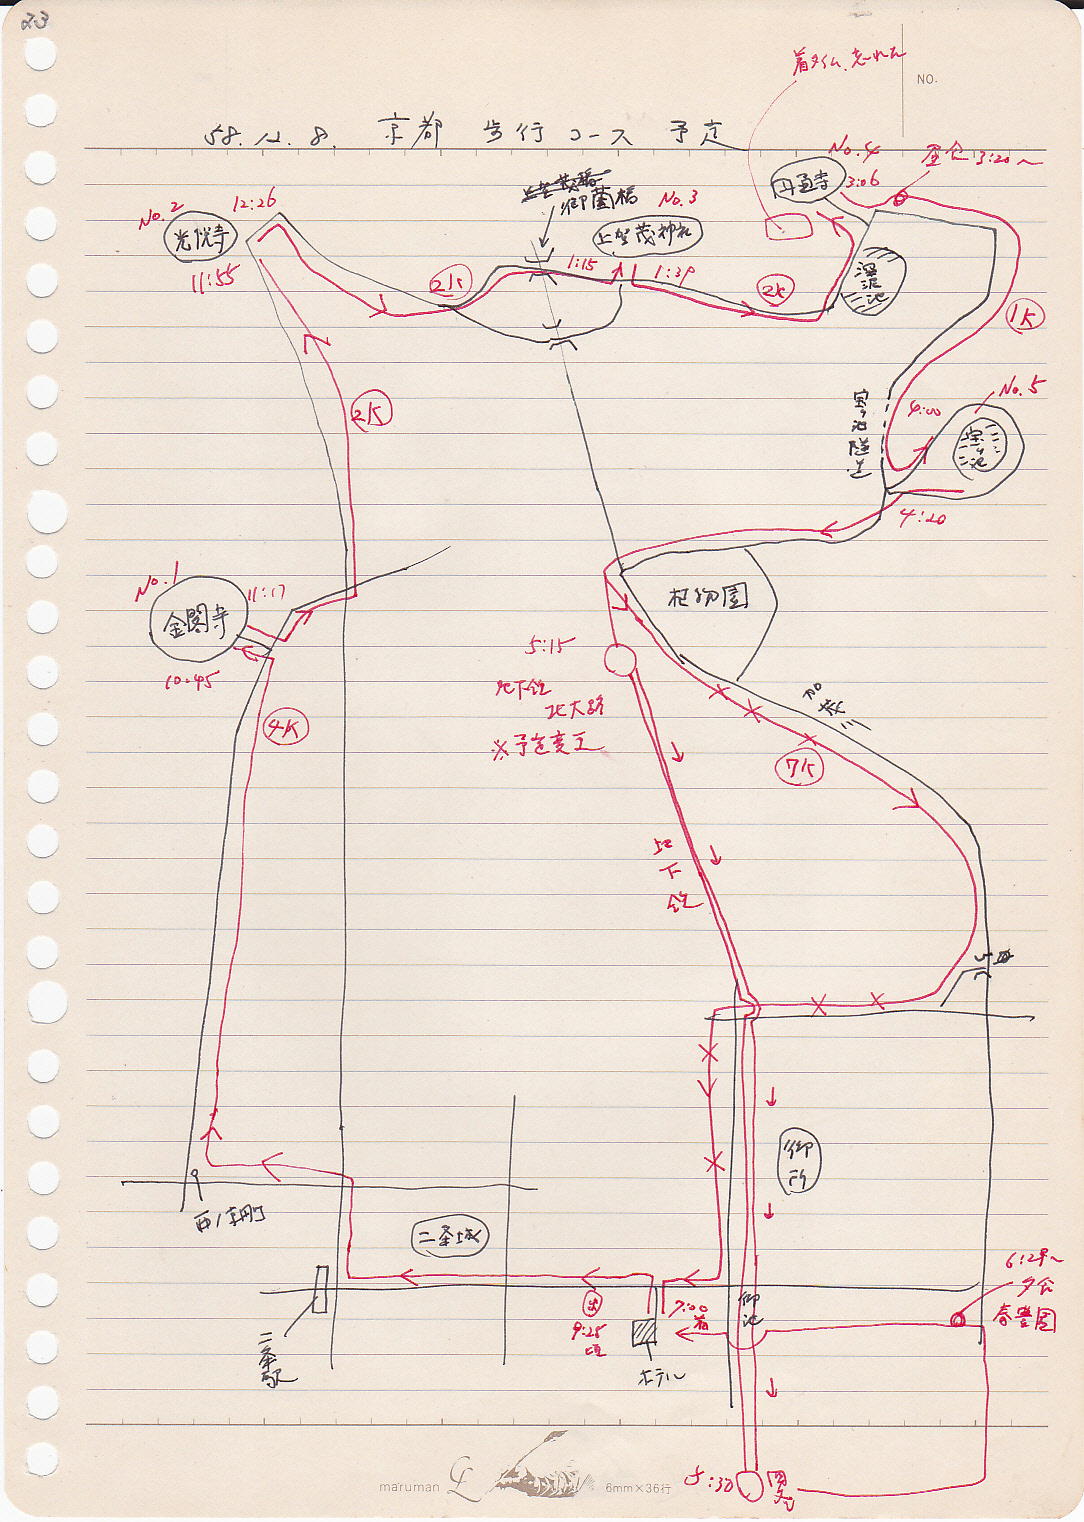 23
着タイム、忘れた
NO.
58.12.8. 京都 歩行コース 予定
No.4
昼食 3:20〜
円通寺
3:06
No.2
12:26
光悦寺
11:55
上賀茂橋
御薗橋
No.3
上賀茂神社
2K
1:15
1:39
2K
深泥池
1K
2K
宝ヶ池隧道
4:00
No.5
宝ヶ池
4:20
No.1
11:17
金閣寺
10:45
植物園
5:15
地下鉄
北大路
※予定変更
4K
加茂川
7K
地下鉄
御所
西ノ京円町
二条城
二条駅
出
9:25
頃
7:00
着
御池
ホテル
6:24〜
夕食
春豊園
5:30
maruman
6mm×36行